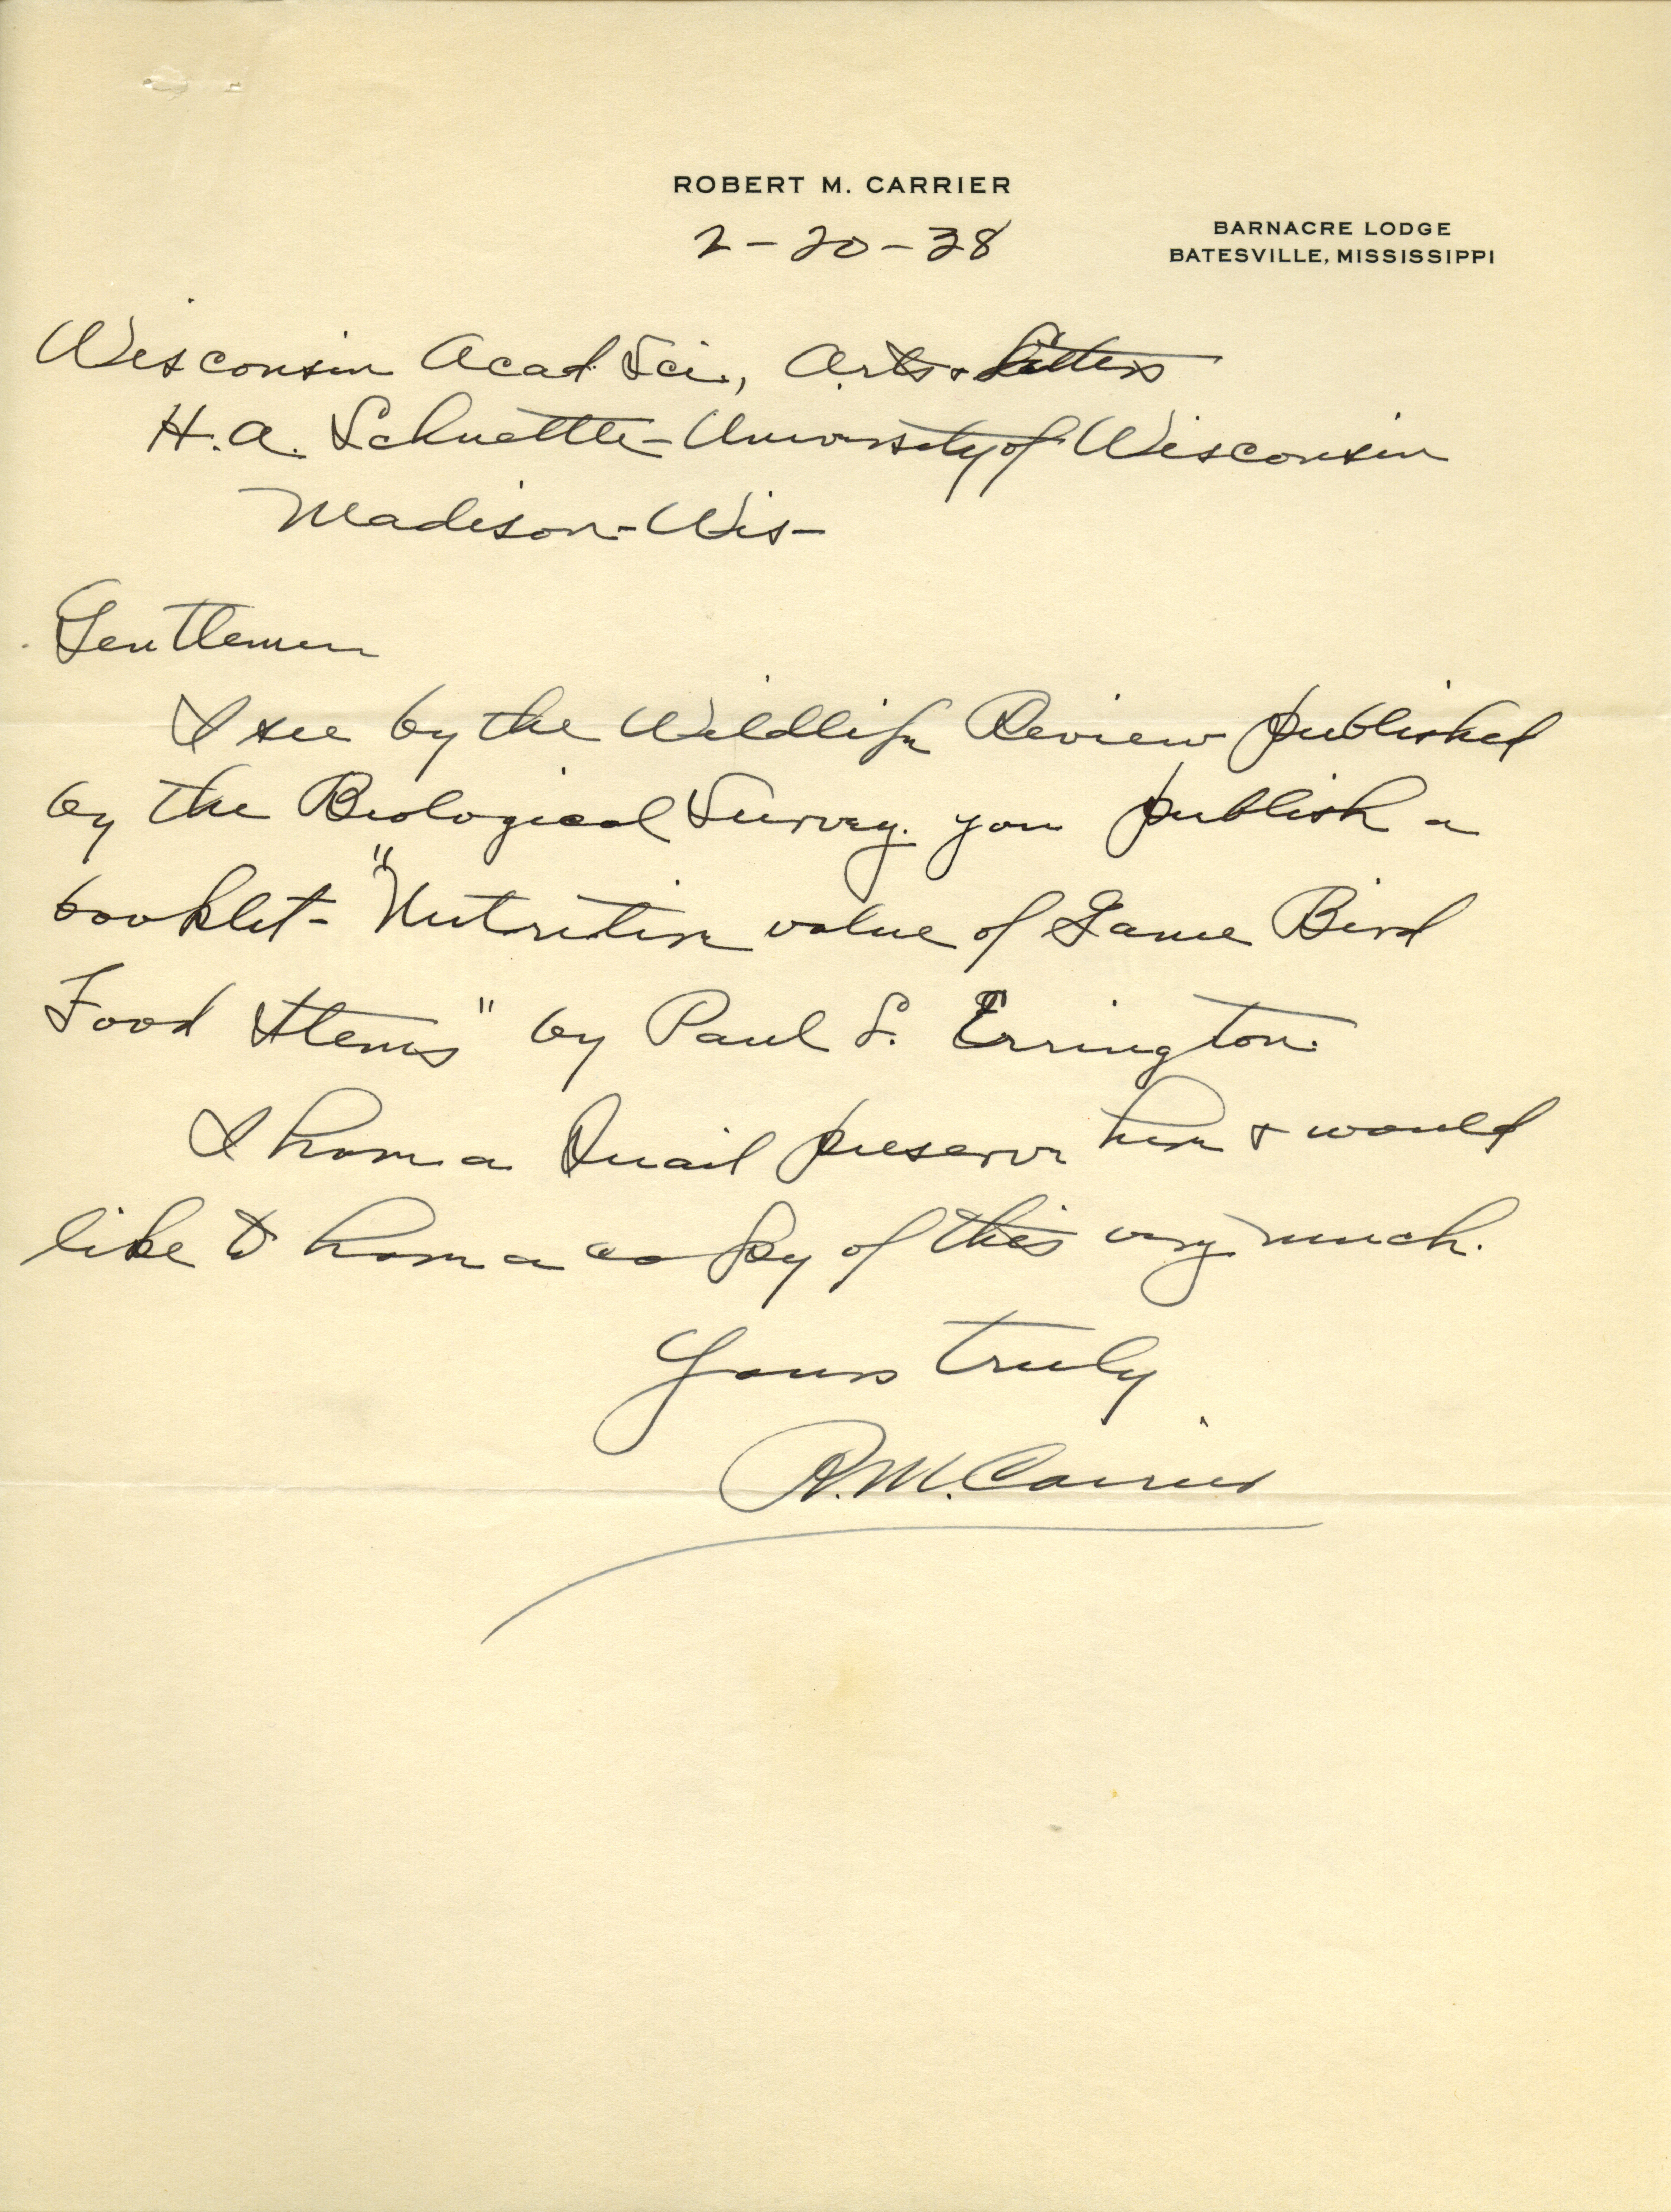 ROBERT M. CARRIER
2-20-38
BARNACRE LODGE
BATESVILLE, MISSISSIPPI
Wisconsin Acad Sci., Arts & Letters
H.A. Schuette - University of Wisconsin
Madison - Wis -
Gentlemen
I see by the Wildlife Review published
by the Biological Survey. you publish a
booklet - "Nutritive value of Game Bird
Food Items" by Paul L. Errington.
I have a Quail preserve here & would
like to have a copy of this very much.
Yours truly
R.M. Carrier